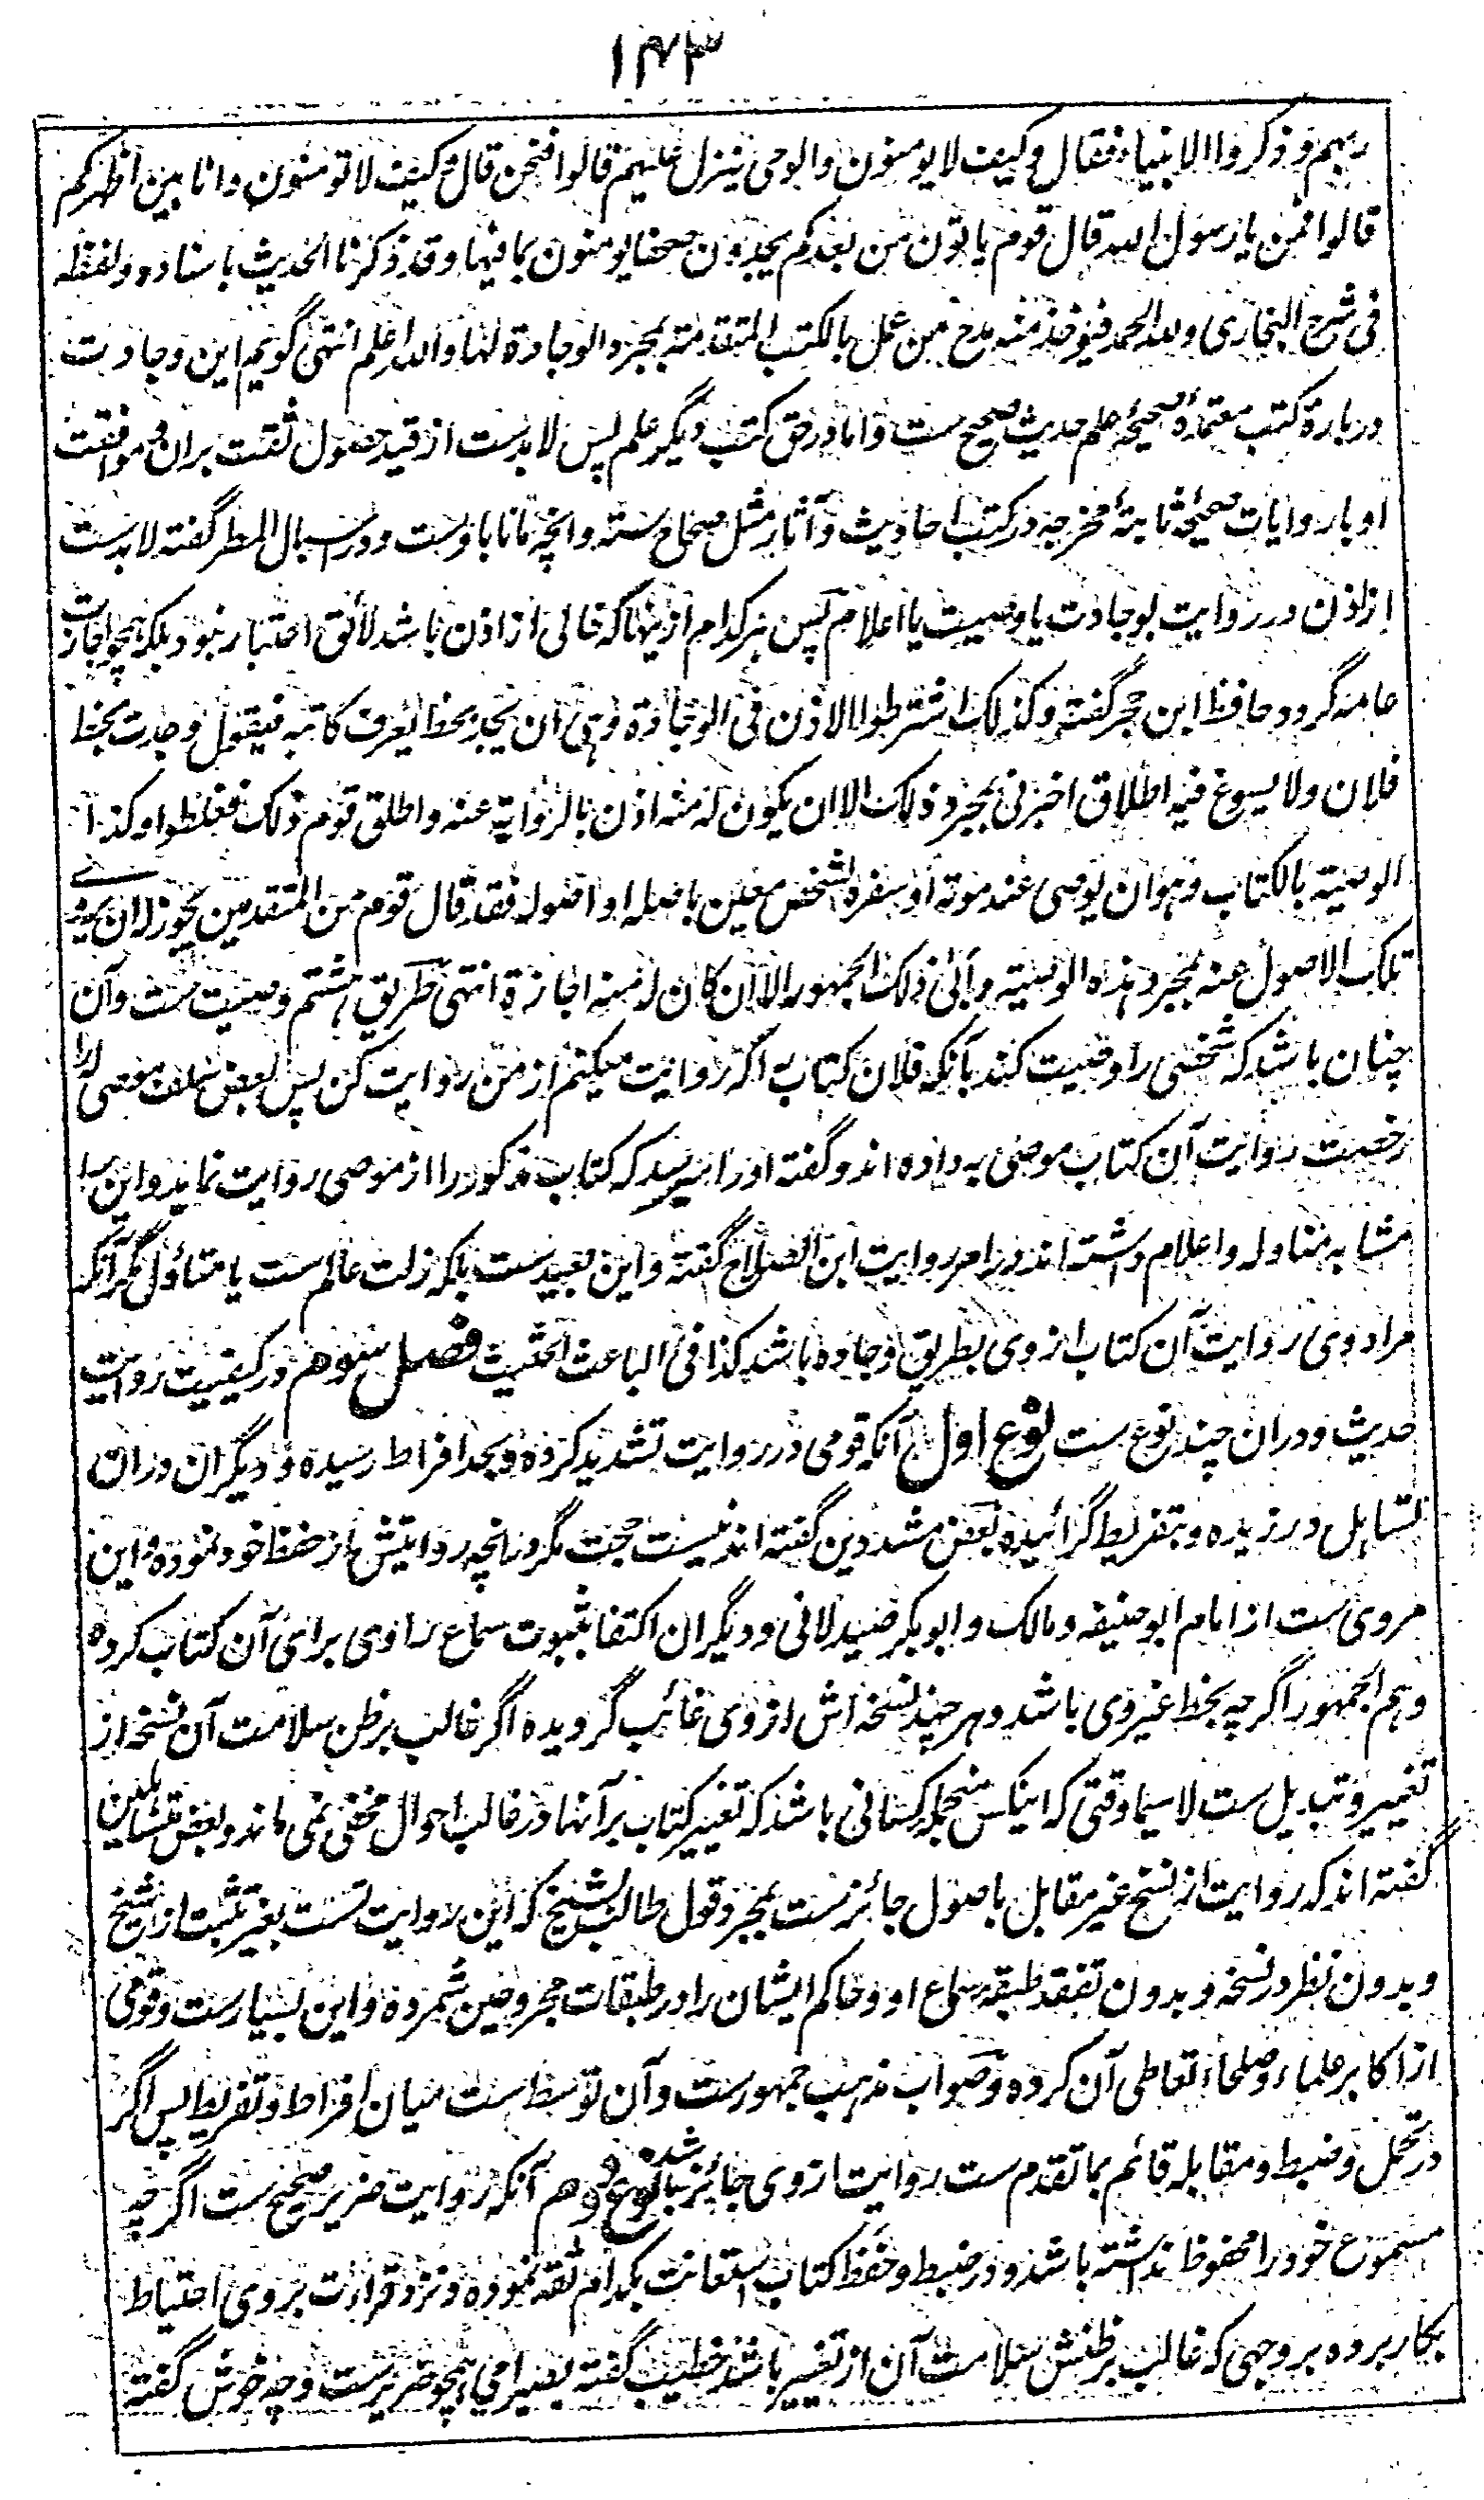 ۱۴۳
ربهم و ذكروا الانبياء فقال وكيف لا يومنون والوحى ينزل عليهم قالوا فنحن قال وكيف لا تومنون وانا بين اظهركم
قالوا فمن يا رسول الله قال قوم ياتون من بعدكم يجدون صحفا يومنون بما فيها وقد ذكرنا الحديث باسناده ولفظه
فى شرح البخارى ولله الحمد فيؤخذ منه مدح من عمل بالكتب المتقدمة بمجرد الوجادة لها والله اعلم انتهى گويم اين وجادت
دربارهٔ كتب معتمدهٔ صحيحهٔ علم حديث صحيح ست و اما در حق كتب ديگر علم پس لابدست از قيد حصول ثقت بران و موافقت
او با روايات صحيحهٔ ثابتهٔ مخرجه در كتب احاديث و آثار مثل صحاح سته و انچه مانا باوست و در اسبال المطر گفته لابدست
از اذن در روايت بوجادت يا وصيت يا اعلام پس هر كدام ازينها كه خالى از اذن باشد لائق اعتبار نبود بلكه همچو اجازت
عامه گردد حافظ ابن حجر گفته وكذلك اشترطوا الاذن فى الوجادة وهى ان يجد بخط يعرف كاتبه فيقول وجدت بخط
فلان ولا يسوغ فيه اطلاق اخبرنى بمجرد ذلك الا ان يكون له منه اذن بالرواية عنه واطلق قوم ذلك فغلطوا وكذا
الوصية بالكتاب وهو ان يوصى عند موته او سفره لشخص معين باصله او اصوله فقد قال قوم من المتقدمين يجوز له ان يروى
تلك الاصول عنه بمجرد هذه الوصية وابى ذلك الجمهور الا ان كان له منه اجازة انتهى طريق هشتم وصيت ست و آن
چنان باشد كه شخصى را وصيت كند بآنكه فلان كتاب را كه روايت ميكنم از من روايت كن پس بعض سلف موصى له را
رخصت روايت آن كتاب موصى به داده اند و گفته او را ميرسد كه كتاب مذكور را از موصى روايت نمايد و اين را
مشابه مناوله و اعلام داشته اند در امر روايت ابن الصلاح گفته و اين بعيدست بلكه زلت عالم ست يا متاؤل مگر آنكه
مراد وى روايت آن كتاب از وى بطريق وجاده باشد كذا فى الباعث الحثيث فصل سوم در كيفيت روايت
حديث و دران چند نوع ست نوع اول آنكه قومى در روايت تشديد كرده و بحد افراط رسيده و ديگران دران
تساهل ورزيده و بتفريط گرائيده بعض مشددين گفته اند نيست حجت مگر در انچه روايتش از حفظ خود نموده و اين
مروى ست از امام ابوحنيفه و مالك و ابوبكر صيدلانى و ديگران اكتفا بثبوت سماع راوى براى آن كتاب كرده
و هم الجمهور اگرچه بخط غير وى باشد و هر چند نسخه اش از وى غائب گرديده اگر غالب بر ظن سلامت آن نسخه از
تغيير و تبديل ست لاسيما وقتى كه اينكس منجمله كسانى باشد كه تغيير كتاب بر آنها در غالب احوال مخفى نمى ماند و بعض متساهلين
گفته اند كه روايت از نسخ غير مقابل باصول جائزست بمجرد قول طالب لشيخ كه اين روايت تست بغير تثبت از شيخ
و بدون نظر در نسخه و بدون تفقد طبقه سماع او و حاكم ايشان را در طبقات مجروحين شمرده و اين بسيارست و قومى
از اكابر علماء و صلحاء تعاطى آن كرده و صواب مذهب جمهورست و آن توسط ست ميان افراط و تفريط پس اگر
در تحمل و ضبط و مقابله قائم بما تقدم ست روايت از وى جائز باشد نوع دوم آنكه روايت ضرير صحيح ست اگرچه
مسموع خود را محفوظ نداشته باشد و در ضبط و حفظ كتاب استعانت بكدام ثقه نموده و نزد قراءت بر وى احتياط
بكار برده بر وجهى كه غالب بر ظنش سلامت آن از تغيير باشد خطيب گفته بصير امى همچو ضريرست و چه خوش گفته